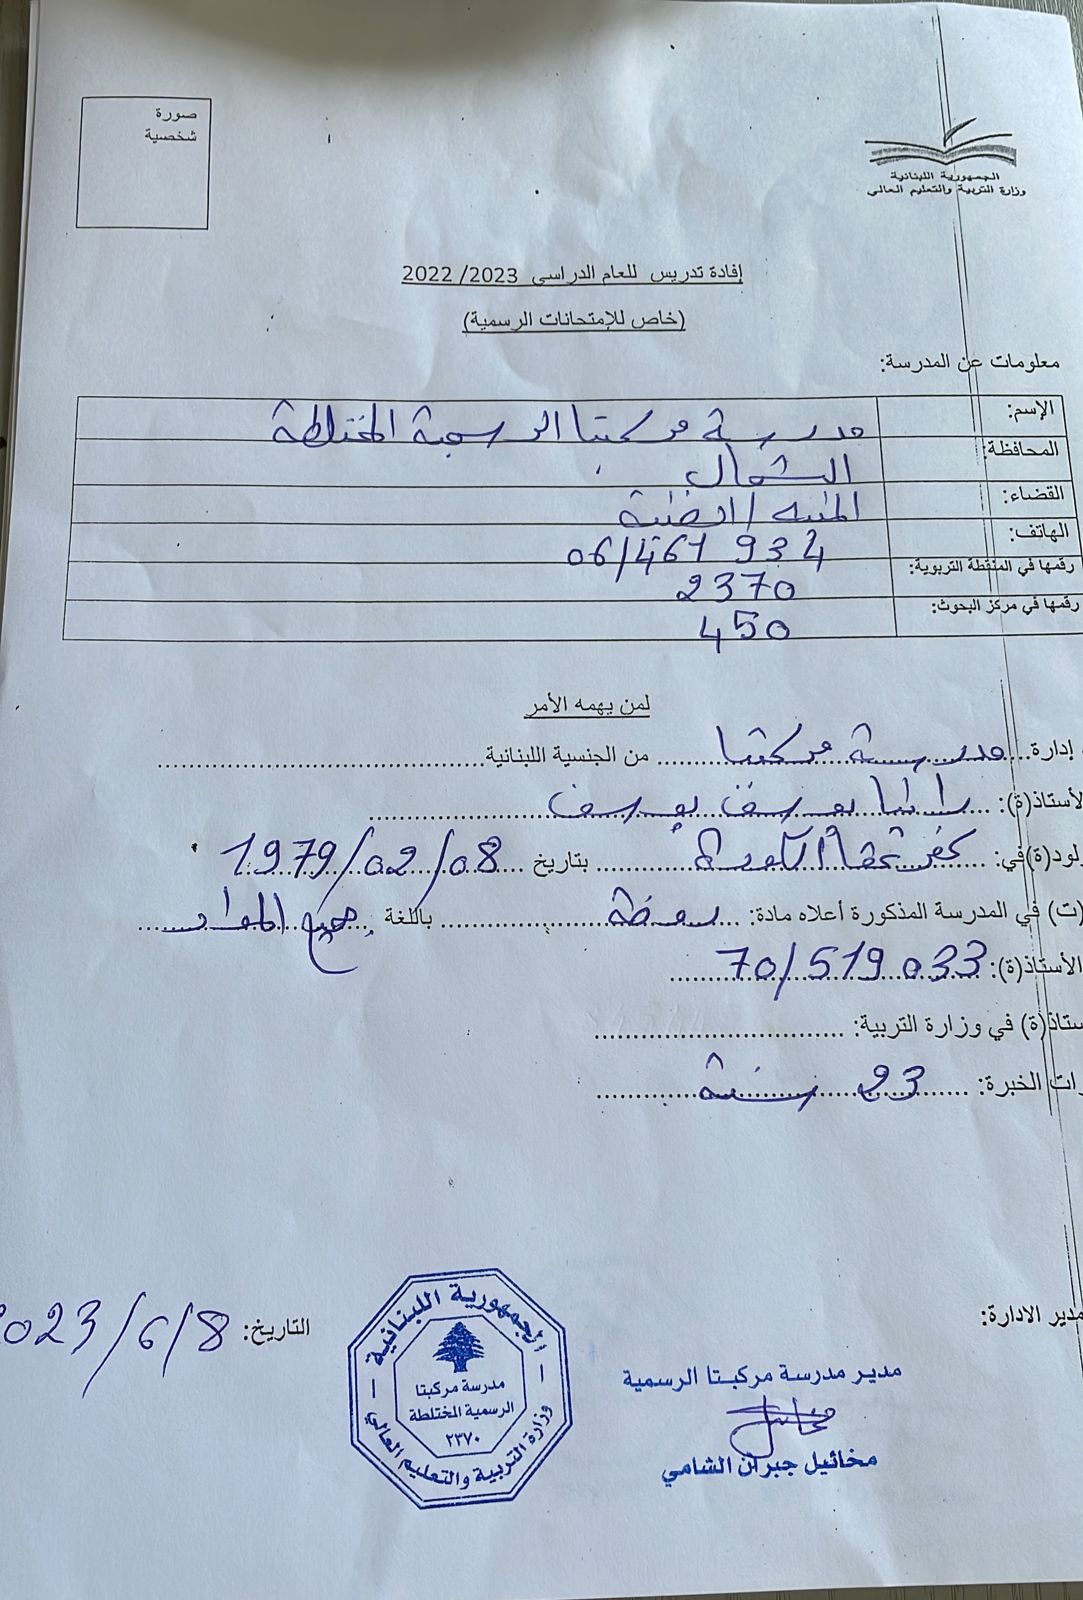 صورة
شخصية
الجمهورية اللبنانية
وزارة التربية والتعليم العالي
إفادة تدريس للعام الدراسي 2023/ 2022
(خاص للإمتحانات الرسمية)
معلومات عن المدرسة:
الإسم: مدرسة مركبتا الرسمية المختلطة
المحافظة: الشمال
القضاء: المنيه / الضنية
الهاتف: 06/461 934
رقمها في المنقطة التربوية: 2370
رقمها في مركز البحوث: 450
لمن يهمه الأمر
إدارة مدرسة مركبتا من الجنسية اللبنانية
لأستاذ(ة): رانيا يوسف يوسف
لود(ة)في: بتاريخ 1979/02/08
(ت) في المدرسة المذكورة أعلاه مادة: روضة باللغة جميع المواد
الأستاذ(ة): 70/519 033
ستاذ(ة) في وزارة التربية:
ات الخبرة: 23 سنة
مدير الادارة:
التاريخ: 2023/6/8
الجمهورية اللبنانية
مدرسة مركبتا
الرسمية المختلطة
٢٣٧٠
وزارة التربية والتعليم العالي
مدير مدرسة مركبتا الرسمية
مخائيل جبران الشامي